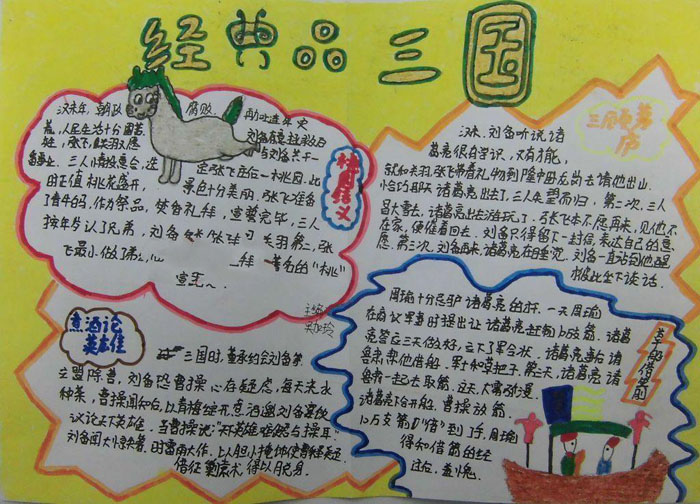 经典品三国
桃园结义
汉末年，朝政腐败，再加上连年灾
荒，人民生活十分困苦。刘备有意拯救百
姓，张飞、关羽又愿与刘备共干一
番事业。三人情投意合，选定张飞庄后一桃园。此
时正值桃花盛开，景色十分美丽，张飞准备
青牛白马，作为祭品，焚香礼拜，宣誓完毕，三人
按年岁认了兄弟，刘备
关羽第二，张
飞最小做了弟
著名的“桃
三顾茅庐
汉末，刘备听说诸
葛亮很有学识，又有才能，
就和关羽、张飞带着礼物到隆中卧龙岗去请他出山。
恰巧那天诸葛亮出去了，三人失望而归，第二次，三人
冒大雪去，诸葛亮出去游玩了，张飞本不愿再来，见他不
在家，便催着回去，刘备只得留下一封信，表达自己的意
愿。第三次，刘备再来，诸葛亮在睡觉，刘备一直站到他醒
，彼此坐下谈话。
煮酒论英雄
三国时，董承约会刘备等
立盟除曹，刘备恐曹操心存疑虑，每天浇水
种菜，曹操闻知后，以青梅绽开，煮酒邀刘备宴饮
议论天下英雄，当曹操说“天下英雄唯使君与操耳”
刘备闻大惊失著，时雷雨大作，以胆小掩饰
得以脱身。
草船借箭
周瑜十分忌妒诸葛亮的才，一天周瑜
在商议军事时提出让诸葛亮赶制10万支箭，诸葛
亮答应三天做好，立下了军令状，诸葛亮事后请
鲁肃帮他借船、军士和草把子，第三天，诸葛亮请
鲁肃一起去取箭，这天，大雾漫漫
诸葛亮下令开船，曹操放箭
10万支箭“借”到了手，周瑜
得知借箭的经
过后，羞愧。